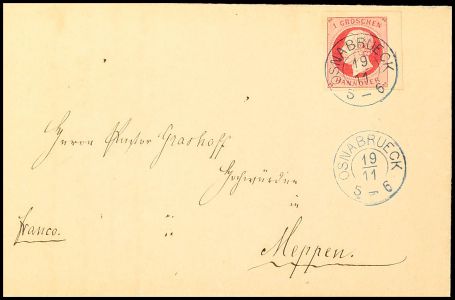 1 GROSCHEN
HANNOVER
OSNABRUECK
19
11
5 — 6
OSNABRUECK
19
11
5 — 6
Herrn Pastor Grashoff
Hochwürden
in
franco.
Meppen.